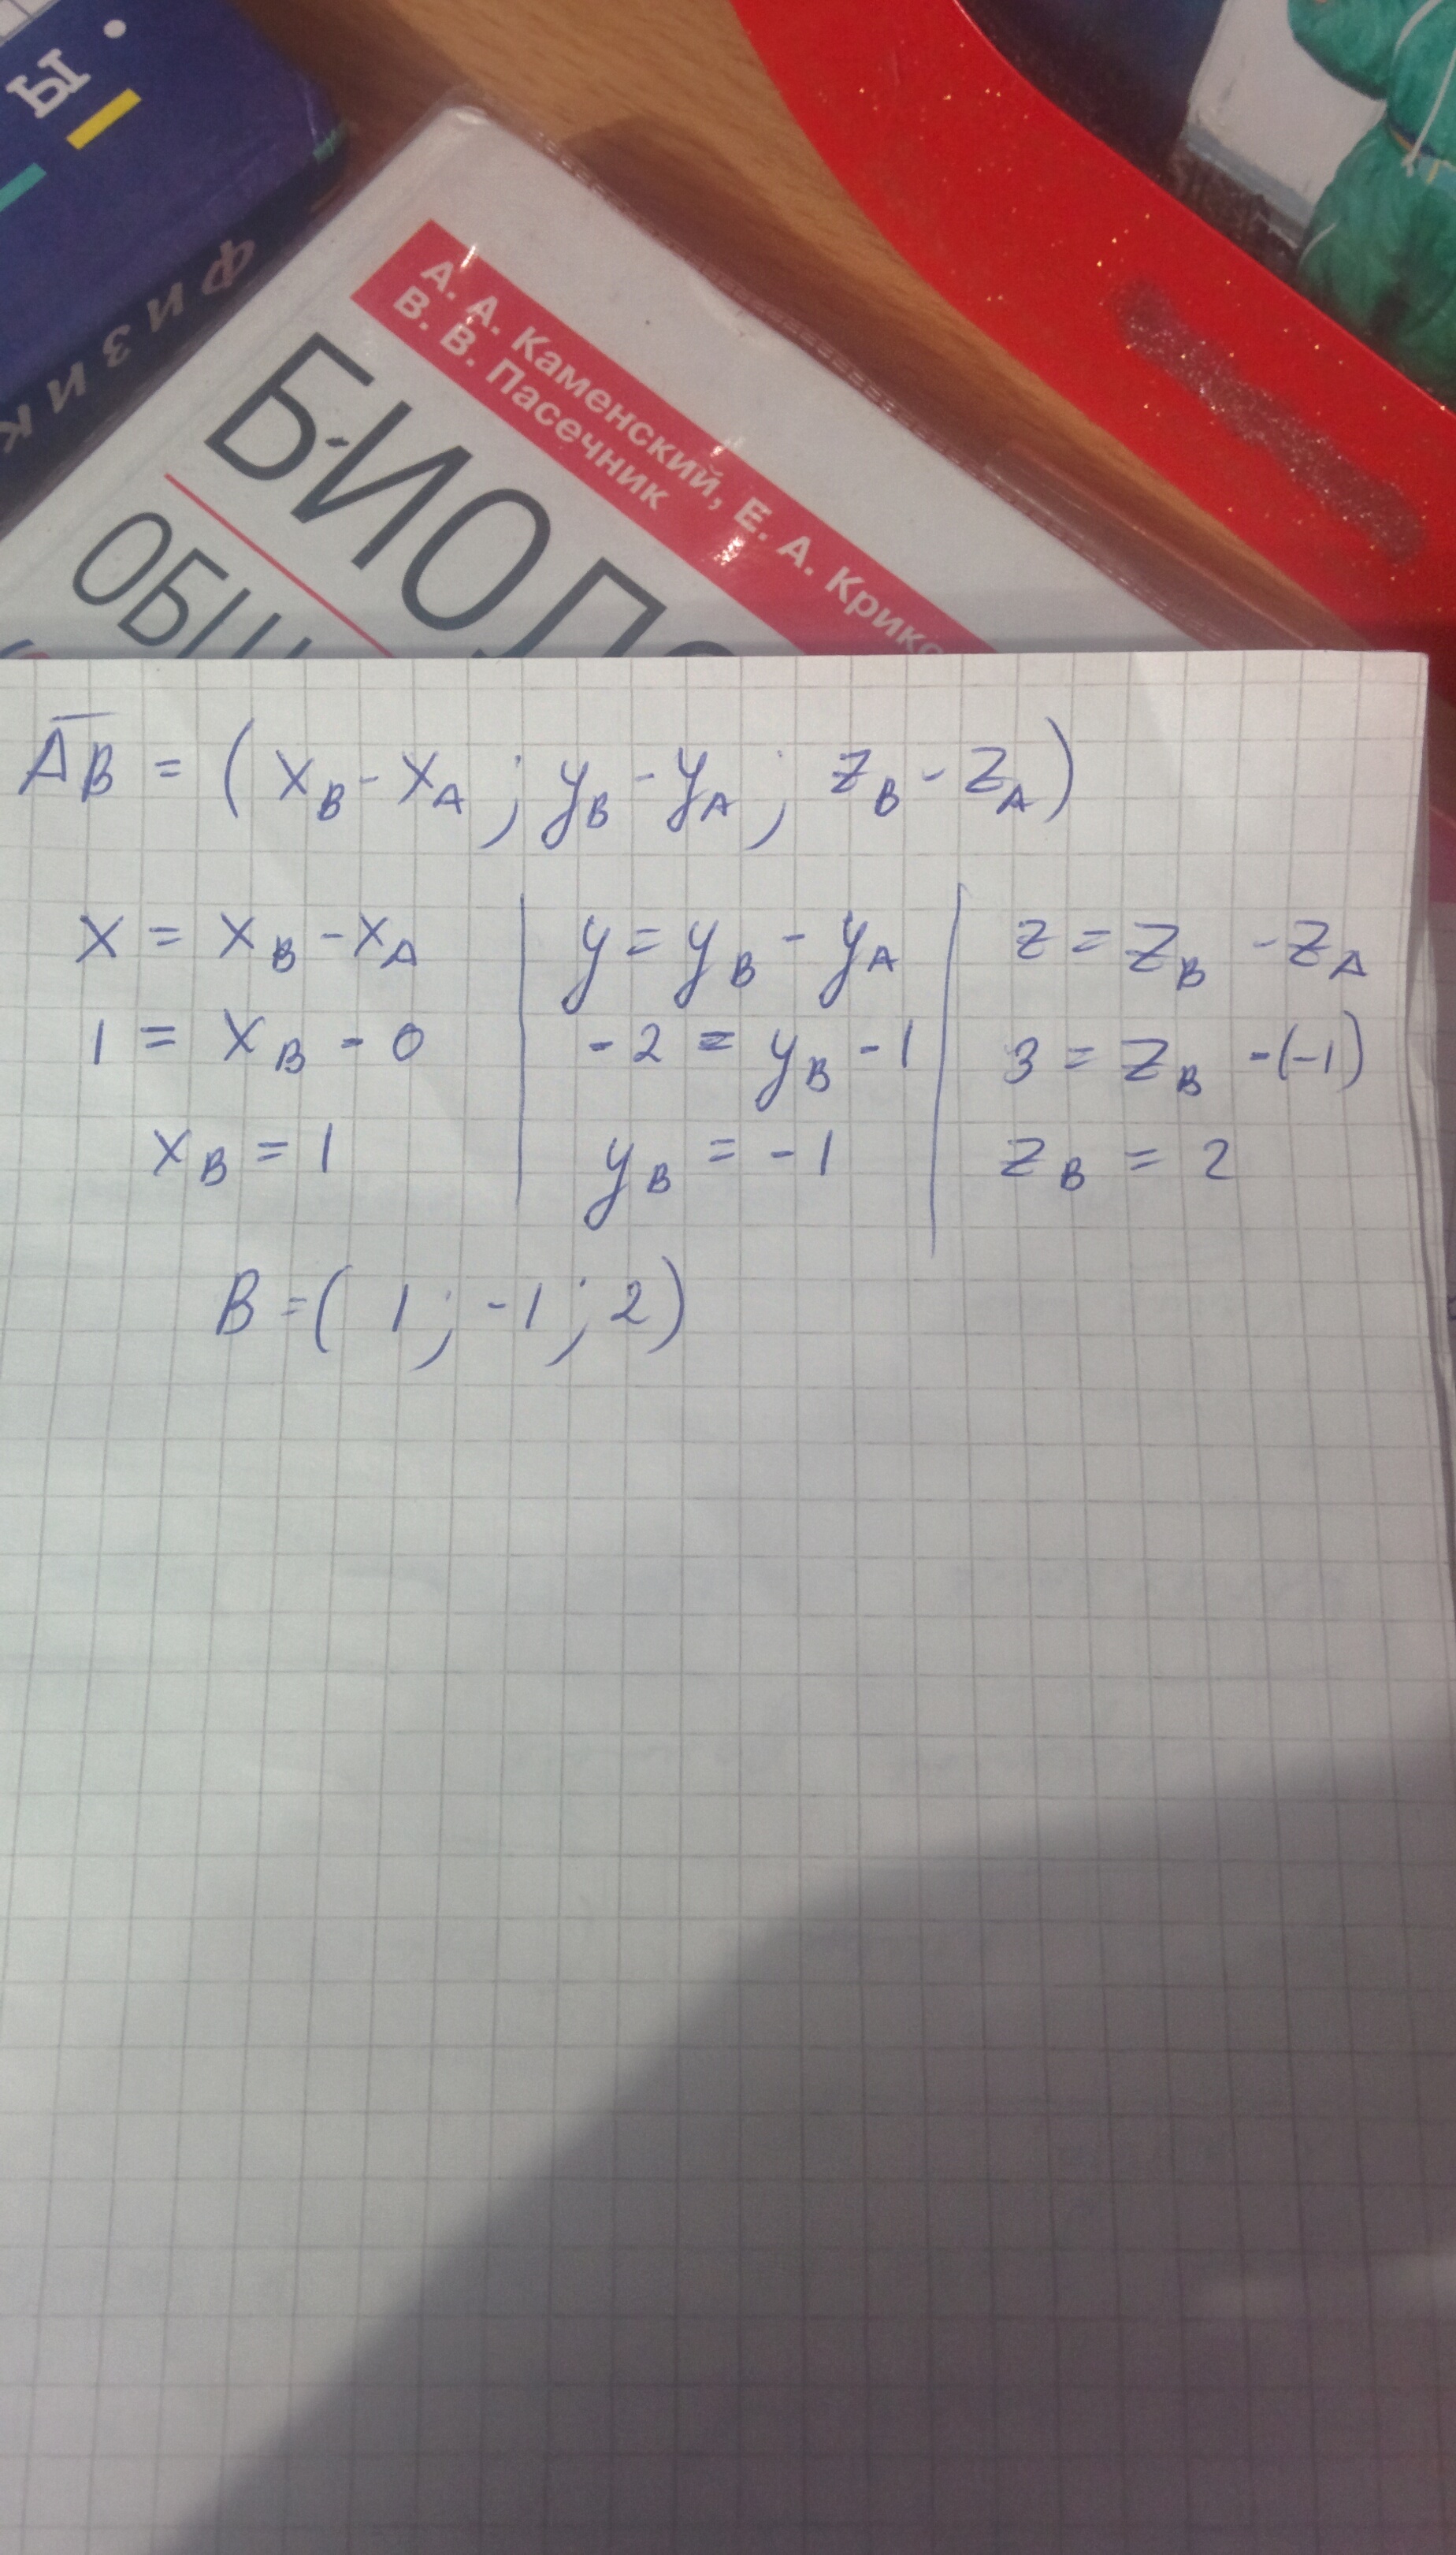 Ы.
ФИЗИК
А. А. Каменский, Е. А. Крикс
В. В. Пасечник
БИОЛО
ОБЩ
A̅B̅ = ( x_B - x_A ; y_B - y_A ; z_B - z_A )
x = x_B - x_A | y = y_B - y_A | z = z_B - z_A
1 = x_B - 0 | -2 = y_B - 1 | 3 = z_B - (-1)
x_B = 1 | y_B = -1 | z_B = 2
B = ( 1 ; -1 ; 2 )